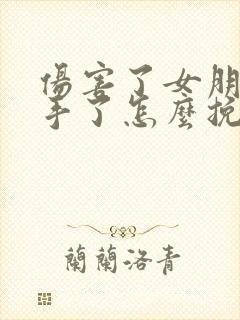 傷害了女朋
手了怎麼挽
蘭蘭洛青